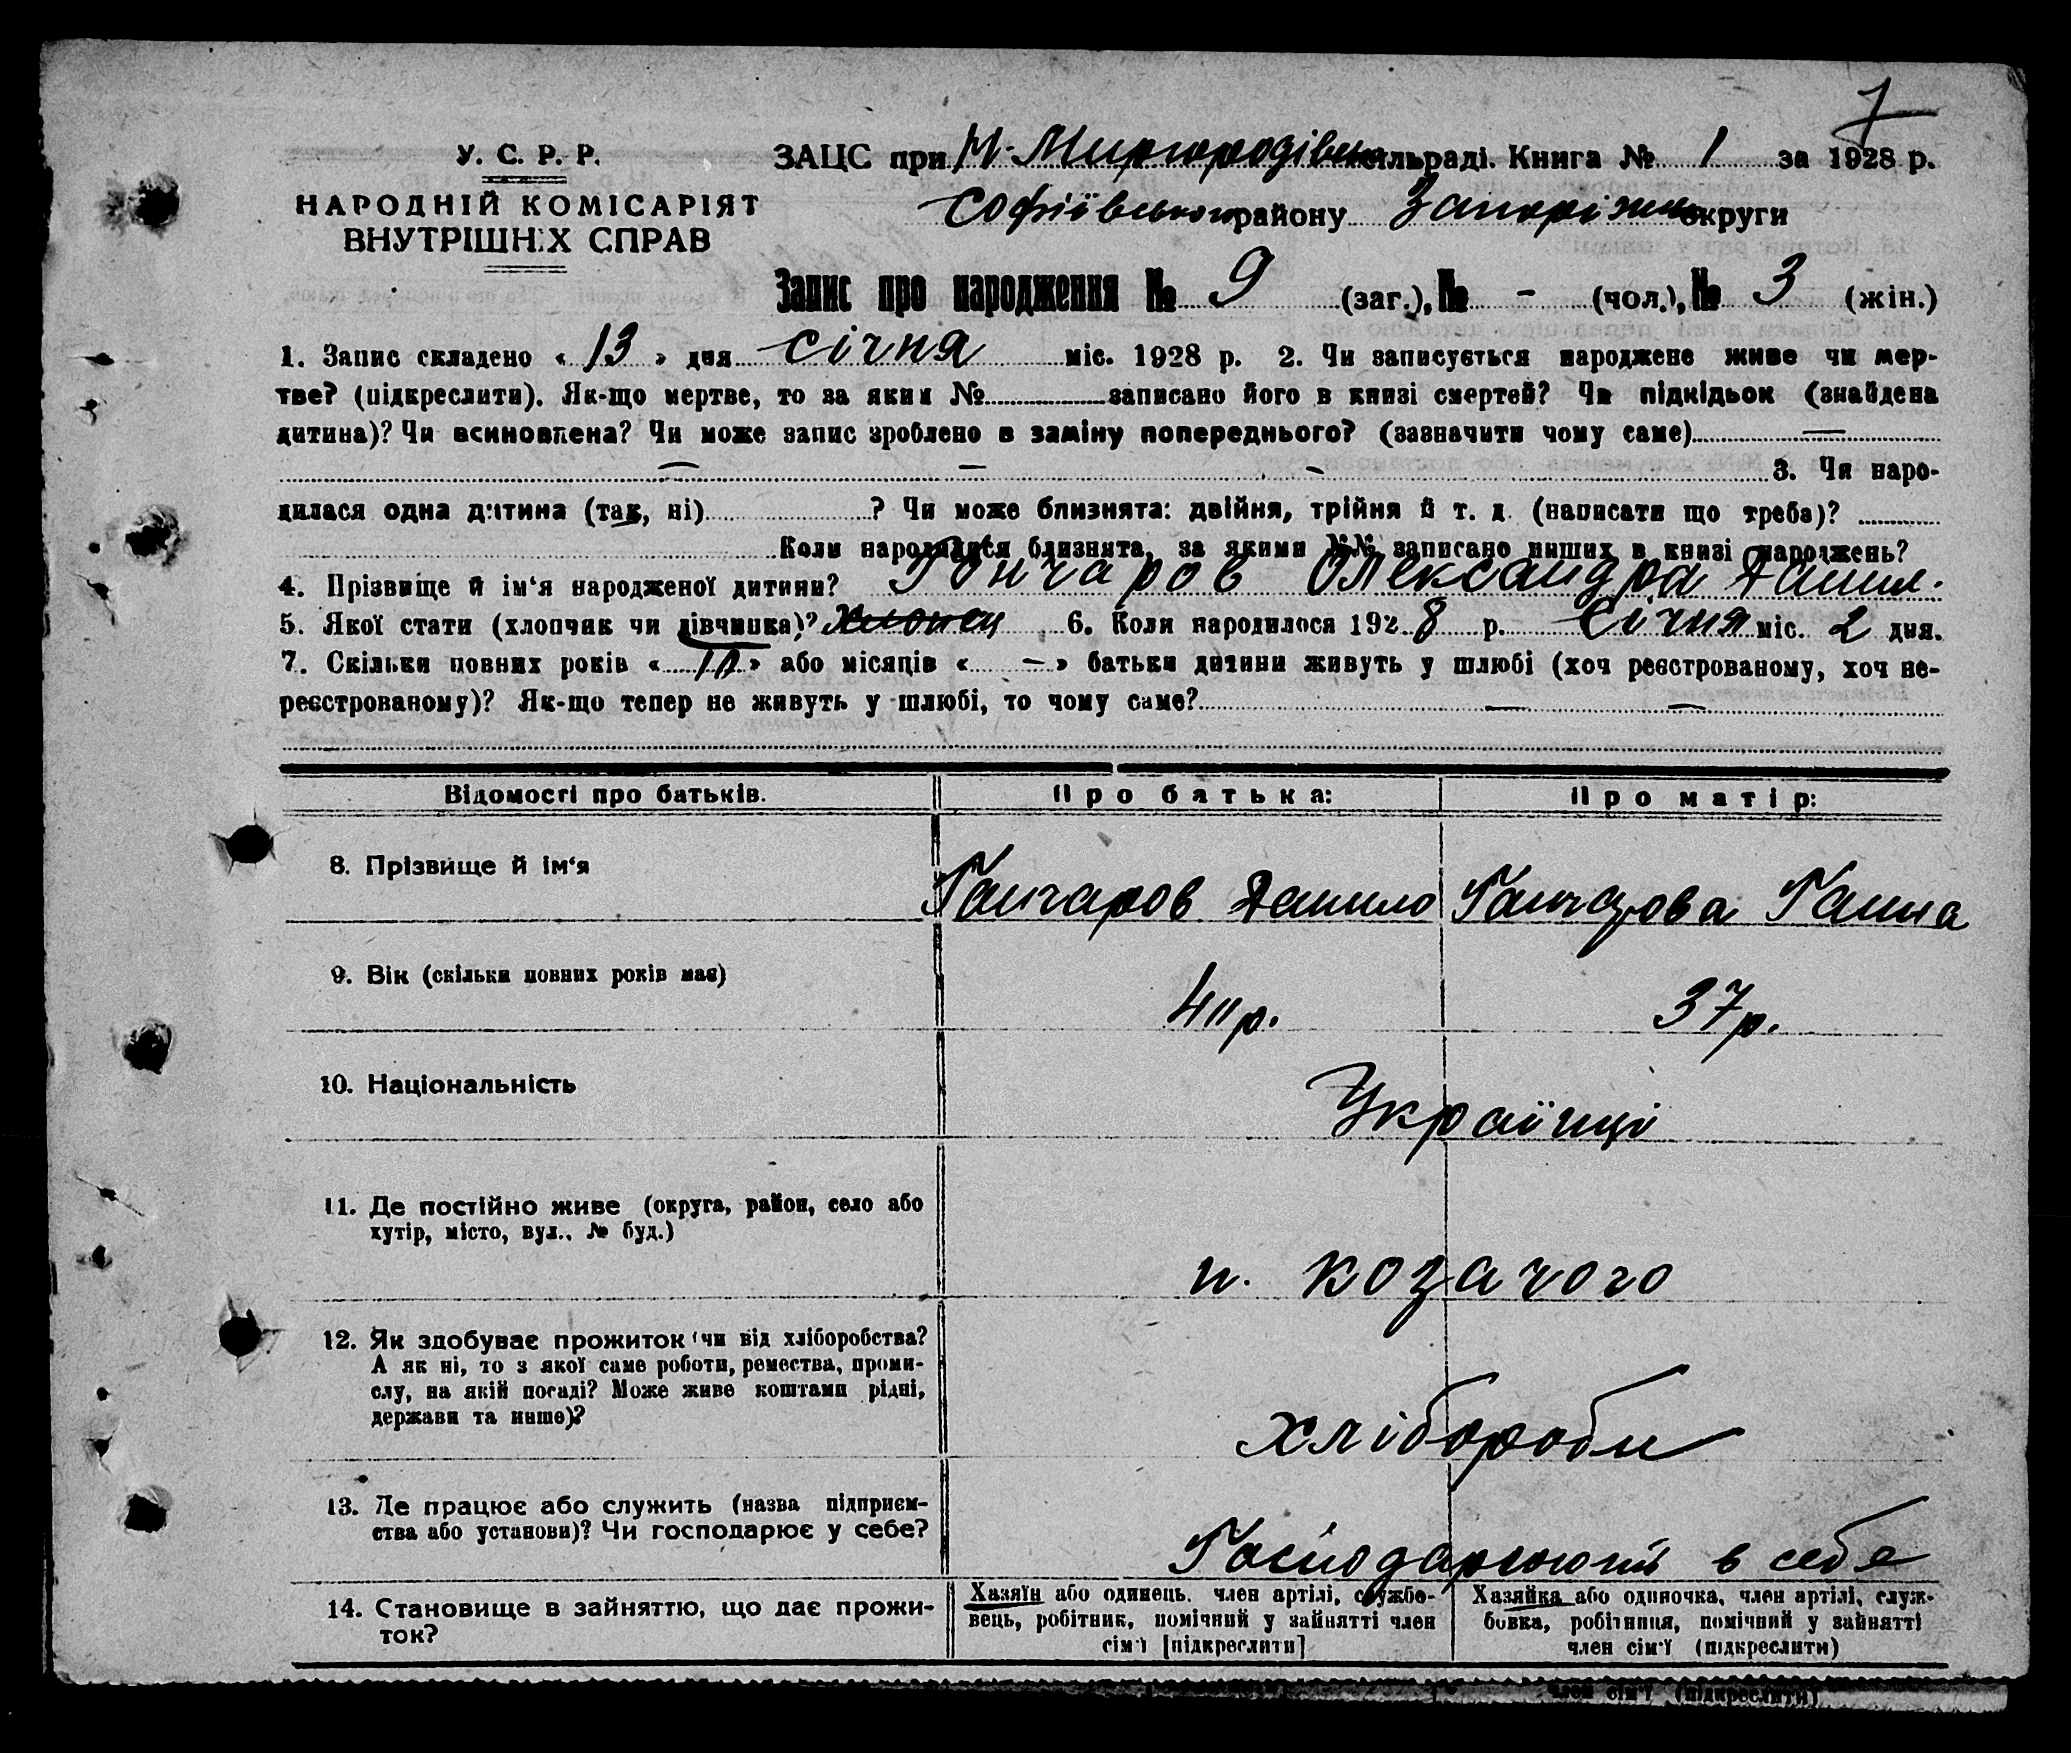 7
У. С. Р. Р.
НАРОДНІЙ КОМІСАРІЯТ
ВНУТРІШНІХ СПРАВ
ЗАЦС при М-Миргородівськ сільраді. Книга № 1 за 1928 р.
Софіївського району Запоріжськ округи
Запис про народження № 9 (заг.), № - (чол.), № 3 (жін.)
1. Запис складено « 13 » дня січня міс. 1928 р. 2. Чи записується народжене живе чи мер-
тве? (підкреслити). Як-що мертве, то за яким № записано його в книзі смертей? Чи підкідьок (знайдена
дитина)? Чи всиновлена? Чи може запис зроблено в заміну попереднього? (зазначити чому саме) —
— — - 3. Чи наро-
дилася одна дитина (так, ні) ? Чи може близнята: двійня, трійня й т. д. (написати що треба)?
Коли народилися близнята, за якими №№ записано инших в книзі народжень?
4. Прізвище й ім‘я народженої дитини? Гончаров Олександра Данил.
5. Якої стати (хлопчик чи дівчинка)? хлопец 6. Коли народилося 1928 р. Січня міс. 2 дня.
7. Скільки повних років « » або місяців « - » батьки дитини живуть у шлюбі (хоч реєстрованому, хоч не-
реєстрованому)? Як-що тепер не живуть у шлюбі, то чому саме? — —
Відомості про батьків. Про батька: Про матір:
8. Прізвище й ім‘я Гончаров Данило Гончарова Ганна
9. Вік (скільки повних років має) р. 37 р.
10. Національність Українці
11. Де постійно живе (округа, район, село або
хутір, місто, вул., № буд.)
п. Козачого
12. Як здобуває прожиток (чи від хліборобства?
А як ні, то з якої саме роботи, ремества, проми-
слу, на якій посаді? Може живе коштами рідні,
держави та инше)?
хлібороби
13. Де працює або служить (назва підприєм-
ства або установи)? Чи господарює у себе?
Господарюють в себе
14. Становище в зайняттю, що дає прожи-
ток?
Хазяїн або одинець, член артілі, службо-
вець, робітник, помічний у зайнятті член
сім‘ї [підкреслити]
Хазяйка або одиночка, член артілі, служ-
бовка, робітниця, помічний у зайнятті
член сім‘ї (підкреслити)
член сім‘ї (підкреслити)